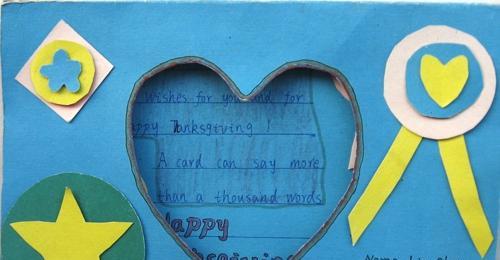 wishes for you and for
ppy Tanksgiving!
A card can say more
than a thousand words
Happy